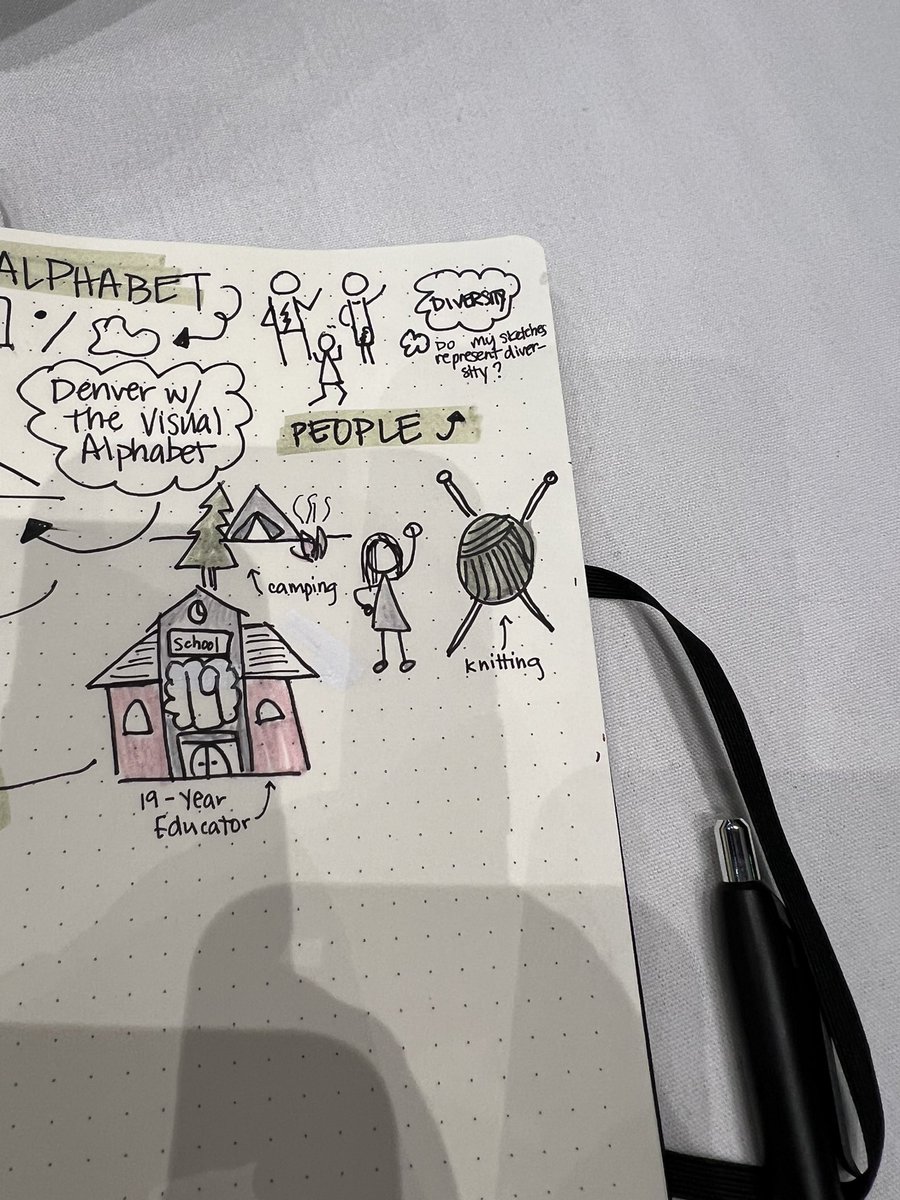 ALPHABET
DIVERSITY
Do my sketches
represent diver-
sity?
Denver w/
the Visual
Alphabet
PEOPLE
camping
School
knitting
19-Year
Educator